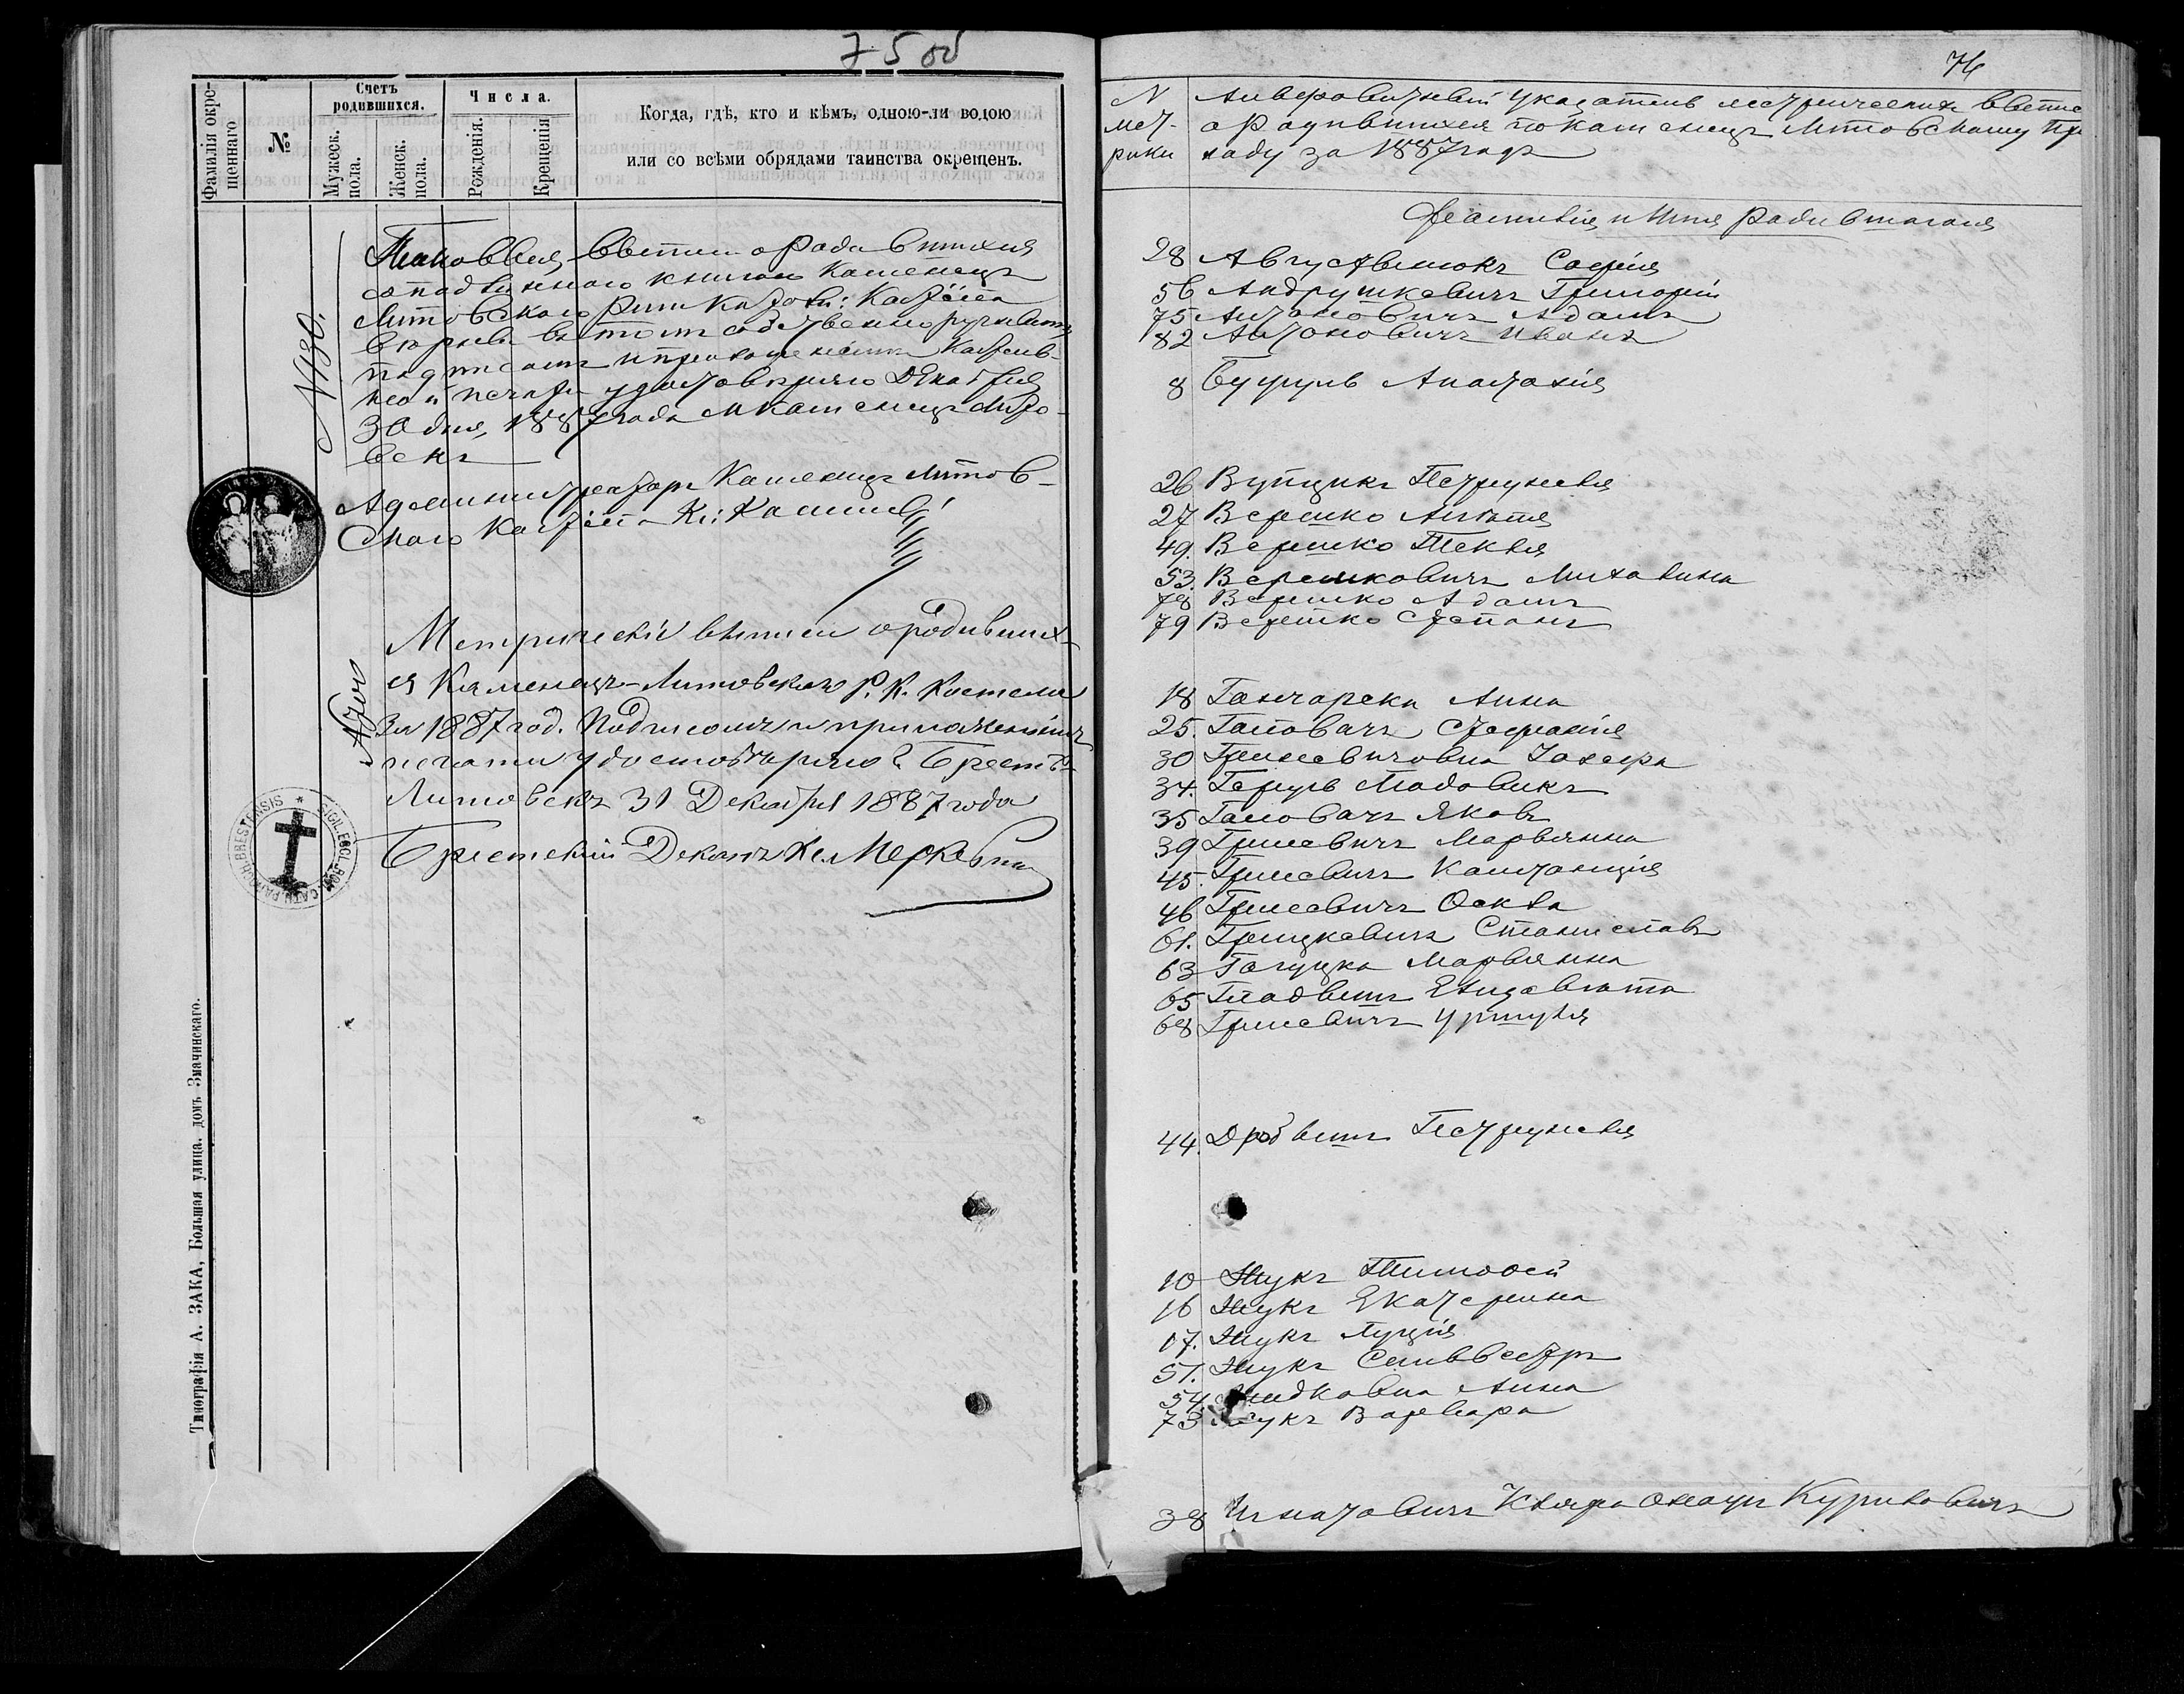 75 об
Фамилія окре-
щеннаго
№
Счетъ
родившихся.
Мужеск.
пола.
Женск.
пола.
Числа.
Рожденія.
Крещенія
Когда, гдѣ, кто и кѣмъ, одною-ли водою
или со всѣми обрядами таинства окрещенъ.
N 180.
Таковыя выписи о родившихся
съ подлинною книгою Каменецъ
Литовскаго Рим Катол: Костела
вѣрны въ томъ собственноручнымъ
подписомъ и приложеніемъ Костель-
ной печати удостовѣряю Декабря
30 дня, 1887 года м Каменецъ Лито-
вскъ
Администраторъ Каменецъ Литов-
скаго Костела Кс:
Метрическія выписи о родивших-
ся Каменецъ-Литовскаго Р. К. Костела
за 1887 год. Подписомъ и приложеніемъ
печати удостовѣряю г. Брестъ-
Литовскъ 31 Декабря 1887 года
Брестскій Деканъ Кс.
SIGIL. ECCL. ROM. CATH. PAROCH. BRESTENSIS
Типографія А. ЗАКА, Большая улица. домъ Значинскаго.
76
N
мет-
рики
Алфавитный указатель метрическихъ выпис
о родившихся по Каменецъ Литовскому При
ходу за 1887 годъ
Фамилія и Имя родившагося
28 Августынюкъ Софія
56 Андрушкевичъ Григорій
75 Антоновичъ Адамъ
82 Антоновичъ Иванъ
8 Анастасія
26 Вупцикъ Петрунеля
27 Верешко
49. Верешко Текля
53. Верешковичъ Михалина
78 Верешко Адамъ
79 Верешко Степанъ
18 Гончарска Анна
25. Головачъ Стефанія
30 Гриневичовна Іозефа
34. Людовикъ
35 Головачъ Яковъ
39 Гриневичъ Марьянна
45. Гриневичъ Констанція
46 Гриневичъ
61. Грицкевичъ Станиславъ
63 Марьянна
65 Елизавета
68 Гриневичъ Уршуля
44. Петрунеля
10 Жукъ Тимофей
16 Жукъ Екатерина
17. Жукъ Луція
51. Жукъ Сильвестръ
54. Анна
73 Жукъ Варвара
38 Игнатовичъ Куриловичъ